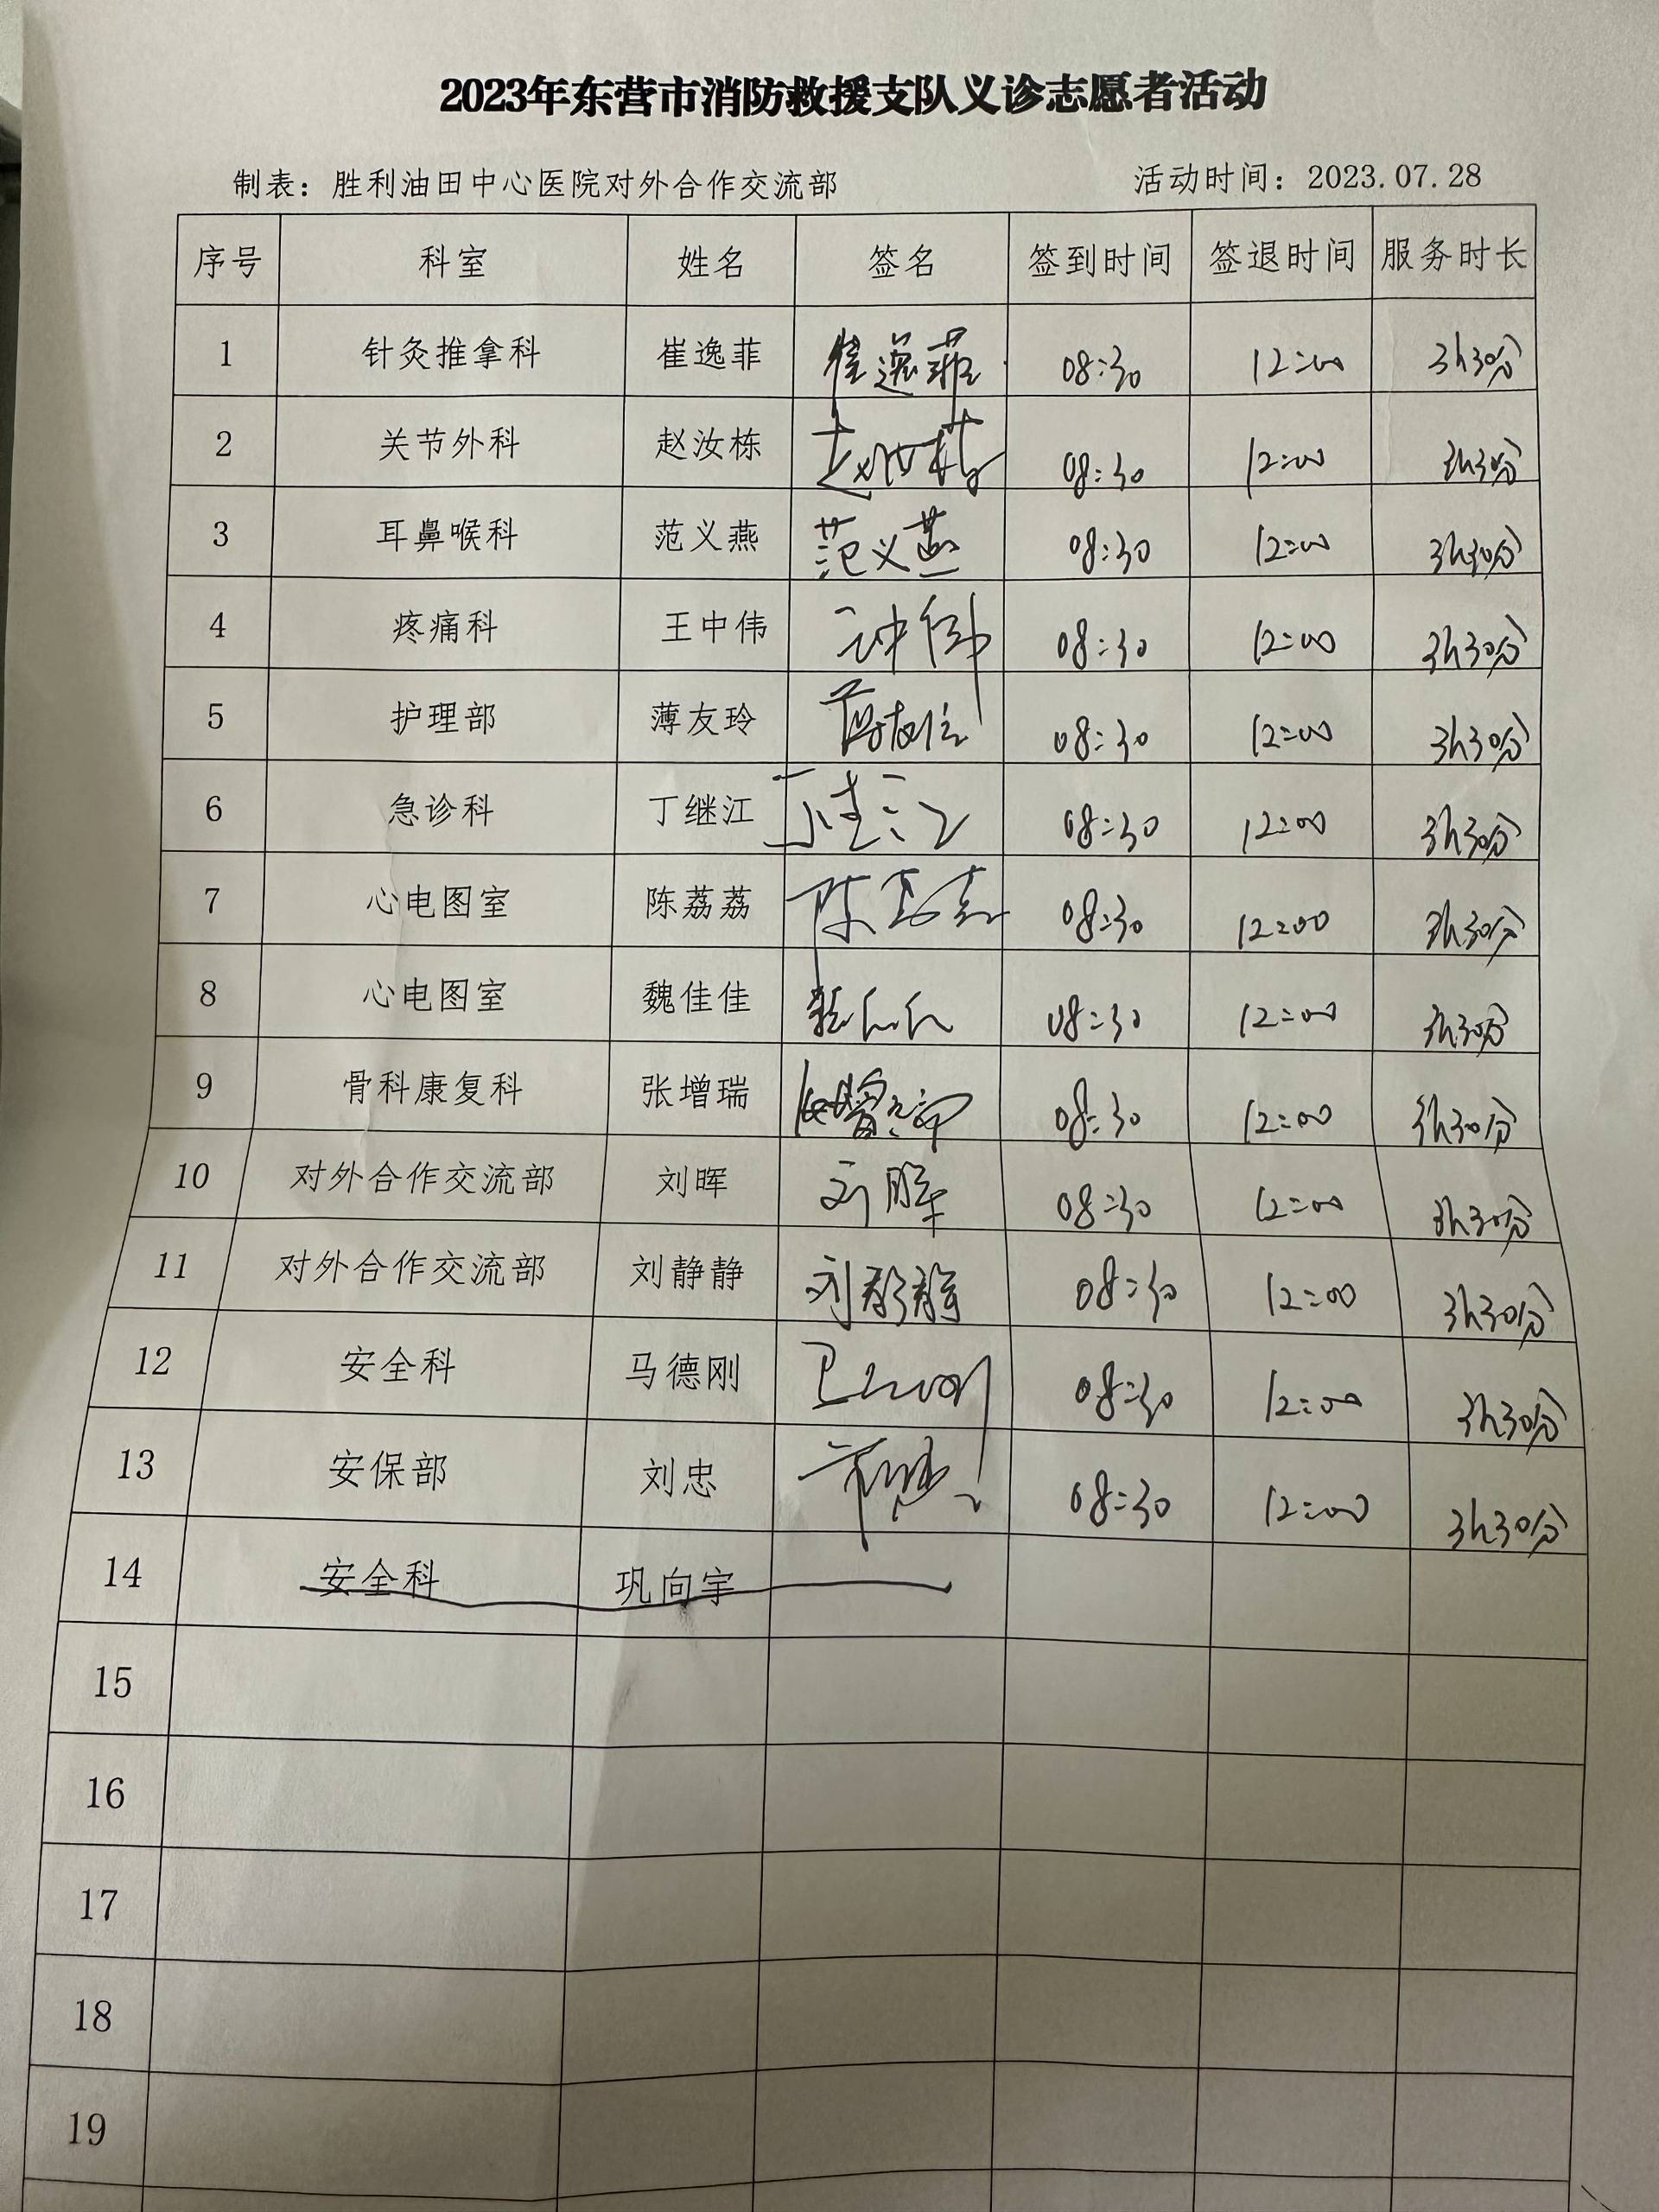 2023年东营市消防救援支队义诊志愿者活动
制表：胜利油田中心医院对外合作交流部 活动时间：2023.07.28
序号 科室 姓名 签名 签到时间 签退时间 服务时长
1 针灸推拿科 崔逸菲 崔逸菲 08:30 12:00 3h30分
2 关节外科 赵汝栋 赵汝栋 08:30 12:00 3h30分
3 耳鼻喉科 范义燕 范义燕 08:30 12:00 3h30分
4 疼痛科 王中伟 王中伟 08:30 12:00 3h30分
5 护理部 薄友玲 薄友玲 08:30 12:00 3h30分
6 急诊科 丁继江 丁继江 08:30 12:00 3h30分
7 心电图室 陈荔荔 陈荔荔 08:30 12:00 3h30分
8 心电图室 魏佳佳 魏佳佳 08:30 12:00 3h30分
9 骨科康复科 张增瑞 张增瑞 08:30 12:00 3h30分
10 对外合作交流部 刘晖 刘晖 08:30 12:00 3h30分
11 对外合作交流部 刘静静 刘静静 08:30 12:00 3h30分
12 安全科 马德刚 08:30 12:00 3h30分
13 安保部 刘忠 08:30 12:00 3h30分
14 安全科 巩向宇
15
16
17
18
19